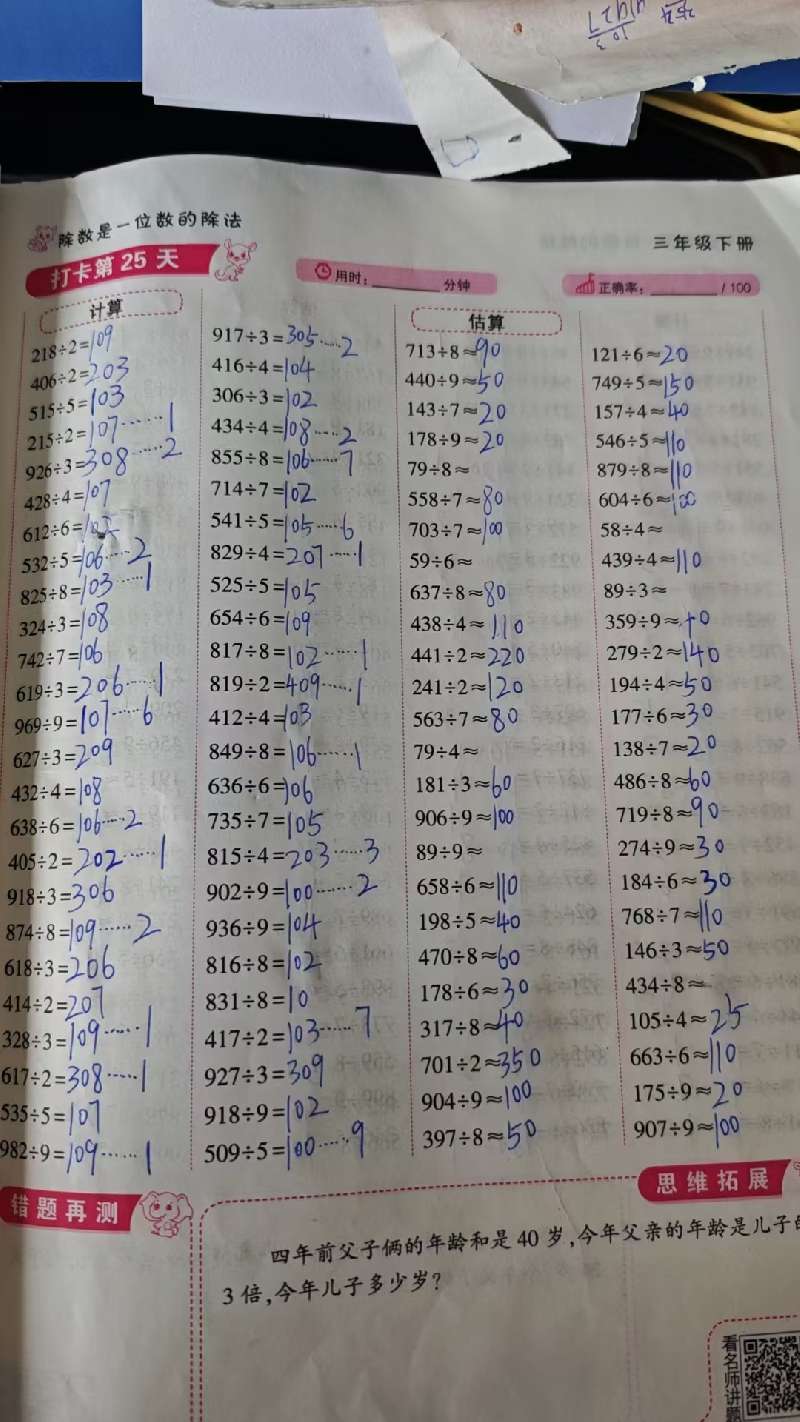 除数是一位数的除法
三年级下册
打卡第25天
用时：________分钟
正确率：________/100
计算
218÷2=109
406÷2=203
515÷5=103
215÷2=107……1
926÷3=308……2
428÷4=107
612÷6=102
532÷5=106……2
825÷8=103……1
324÷3=108
742÷7=106
619÷3=206……1
969÷9=107……6
627÷3=209
432÷4=108
638÷6=106……2
405÷2=202……1
918÷3=306
874÷8=109……2
618÷3=206
414÷2=207
328÷3=109……1
617÷2=308……1
535÷5=107
982÷9=109……1
917÷3=305……2
416÷4=104
306÷3=102
434÷4=108……2
855÷8=106……7
714÷7=102
541÷5=105……6
829÷4=207……1
525÷5=105
654÷6=109
817÷8=102……1
819÷2=409……1
412÷4=103
849÷8=106……1
636÷6=106
735÷7=105
815÷4=203……3
902÷9=100……2
936÷9=104
816÷8=102
831÷8=10
417÷2=103……7
927÷3=309
918÷9=102
509÷5=100……9
估算
713÷8≈90
440÷9≈50
143÷7≈20
178÷9≈20
79÷8≈
558÷7≈80
703÷7≈100
59÷6≈
637÷8≈80
438÷4≈110
441÷2≈220
241÷2≈120
563÷7≈80
79÷4≈
181÷3≈60
906÷9≈100
89÷9≈
658÷6≈110
198÷5≈40
470÷8≈60
178÷6≈30
317÷8≈40
701÷2≈350
904÷9≈100
397÷8≈50
121÷6≈20
749÷5≈150
157÷4≈40
546÷5≈110
879÷8≈110
604÷6≈100
58÷4≈
439÷4≈110
89÷3≈
359÷9≈40
279÷2≈140
194÷4≈50
177÷6≈30
138÷7≈20
486÷8≈60
719÷8≈90
274÷9≈30
184÷6≈30
768÷7≈110
146÷3≈50
434÷8≈
105÷4≈25
663÷6≈110
175÷9≈20
907÷9≈100
错题再测
思维拓展
四年前父子俩的年龄和是40岁，今年父亲的年龄是儿子的
3倍，今年儿子多少岁？
看名师讲题